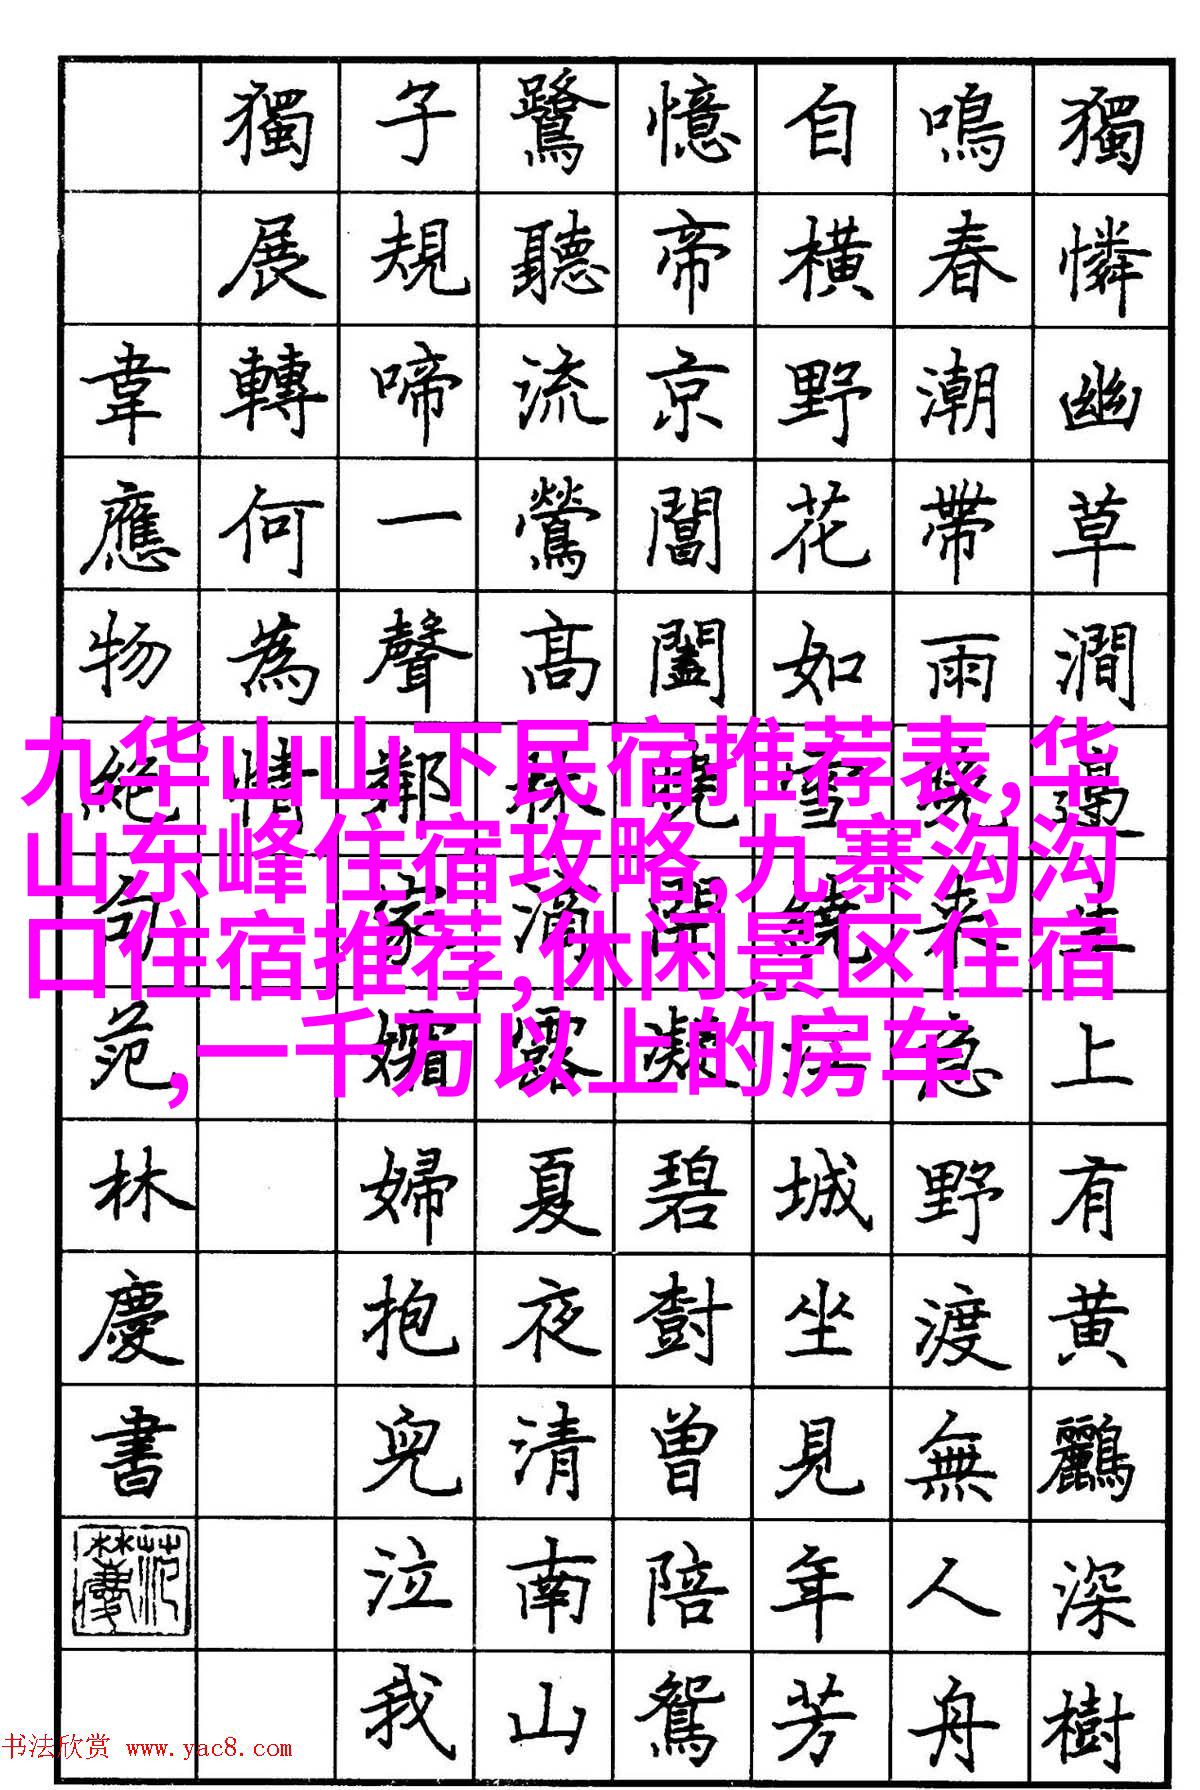 獨憐幽草澗邊生上有黄鸝深樹
鳴春潮帶雨晚來急野渡無人舟
自橫野花如雪繞江城坐見年芳
憶帝京閶闔曉開凝碧樹曾陪鴛
鷺聽流鶯高林滴露夏夜清南山
子規啼一聲鄰家孀婦抱兒泣我
獨展轉何為情
韋應物絕句范林慶書
范林慶
九华山山下民宿推荐表,华
山东峰住宿攻略,九寨沟沟
口住宿推荐,休闲景区住宿
,一千万以上的房车
书法欣赏 www.yac8.com